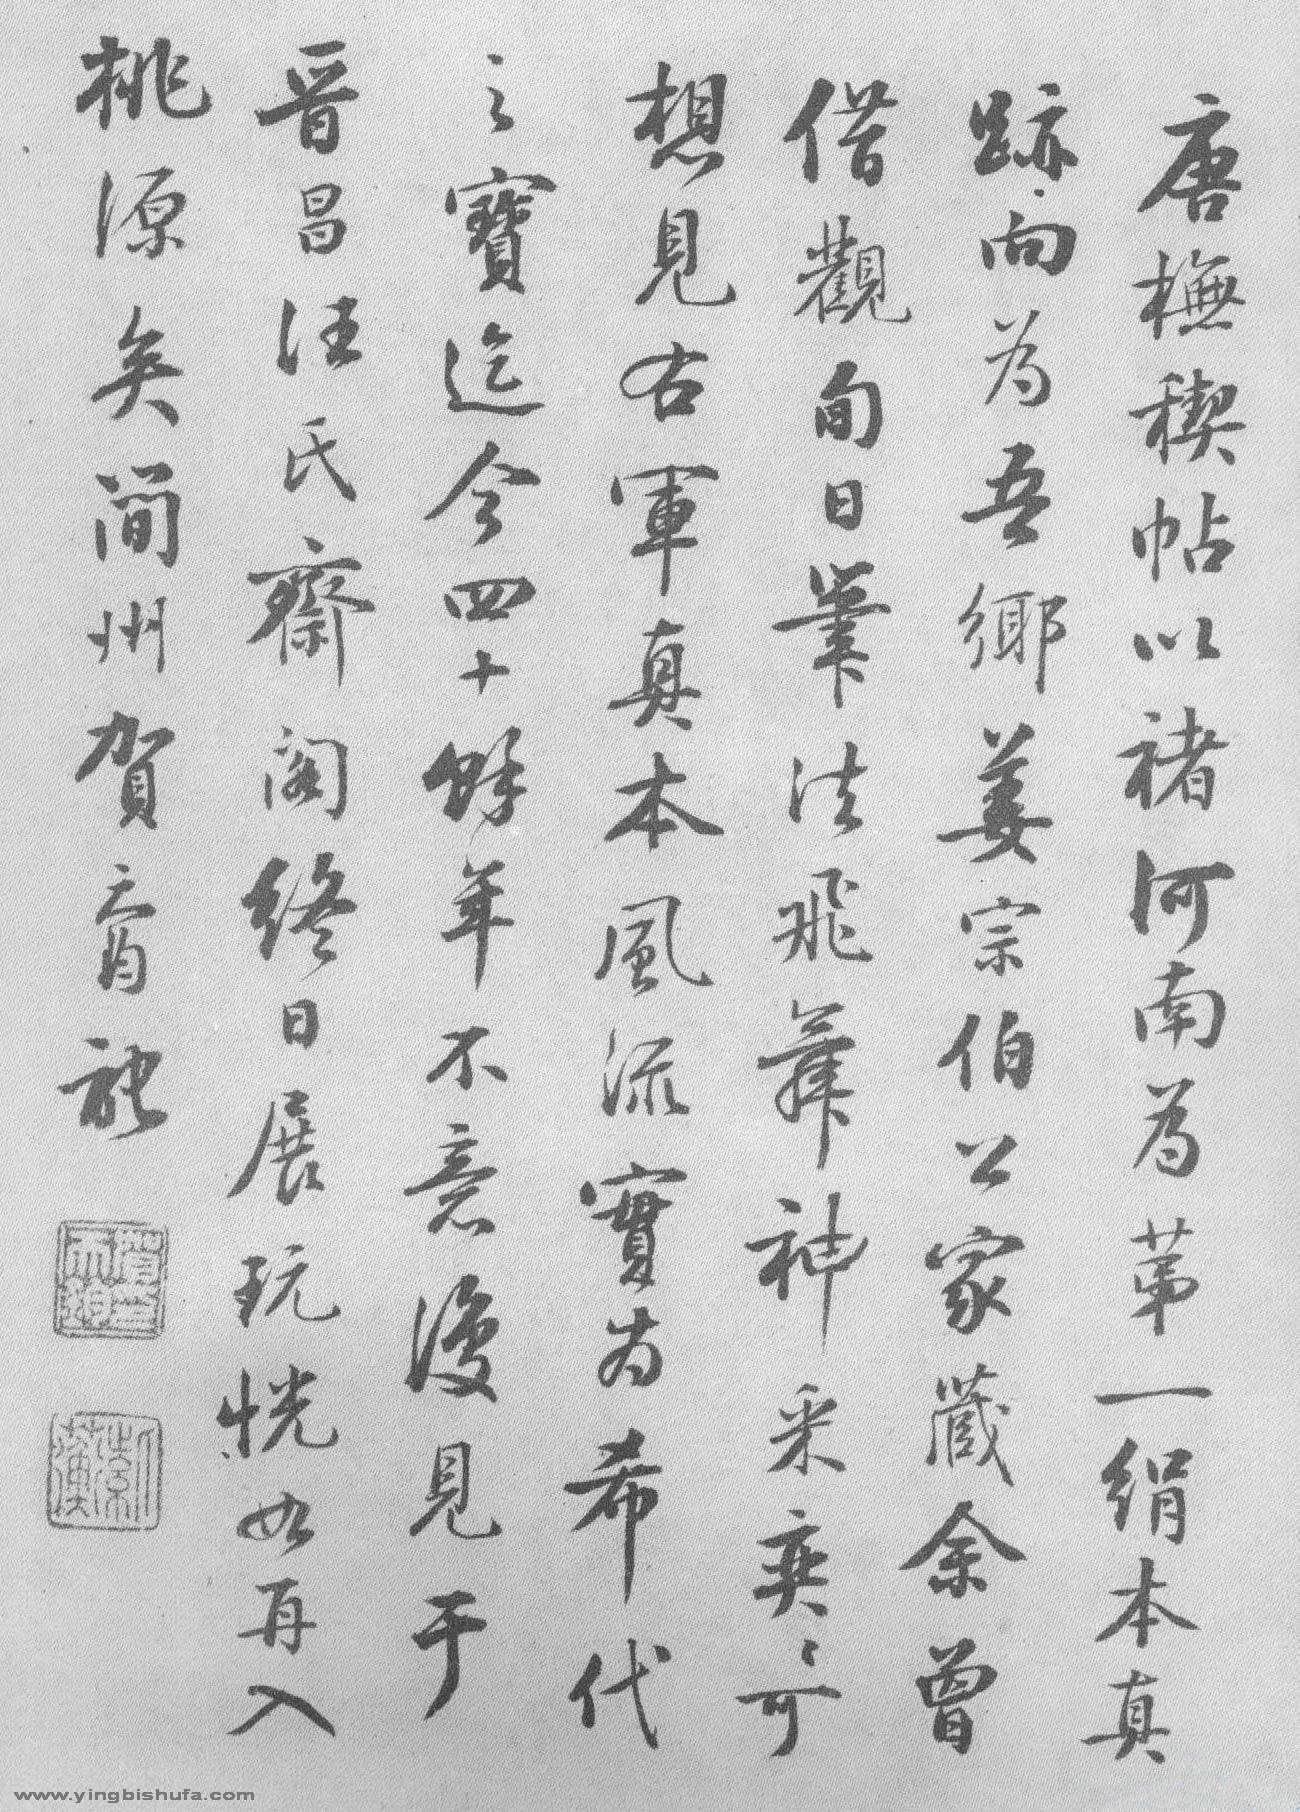 唐橅禊帖以褚河南為苐一絹本真
跡向為吾鄉姜宗伯公家藏余曾
借觀旬日筆法飛舞神采奕〻可
想見右軍真本風流實為希代
之寶迄今四十餘年不意復見于
晋昌汪氏齋閣終日展玩恍如再入
桃源矣簡州賀
www.yingbishufa.com